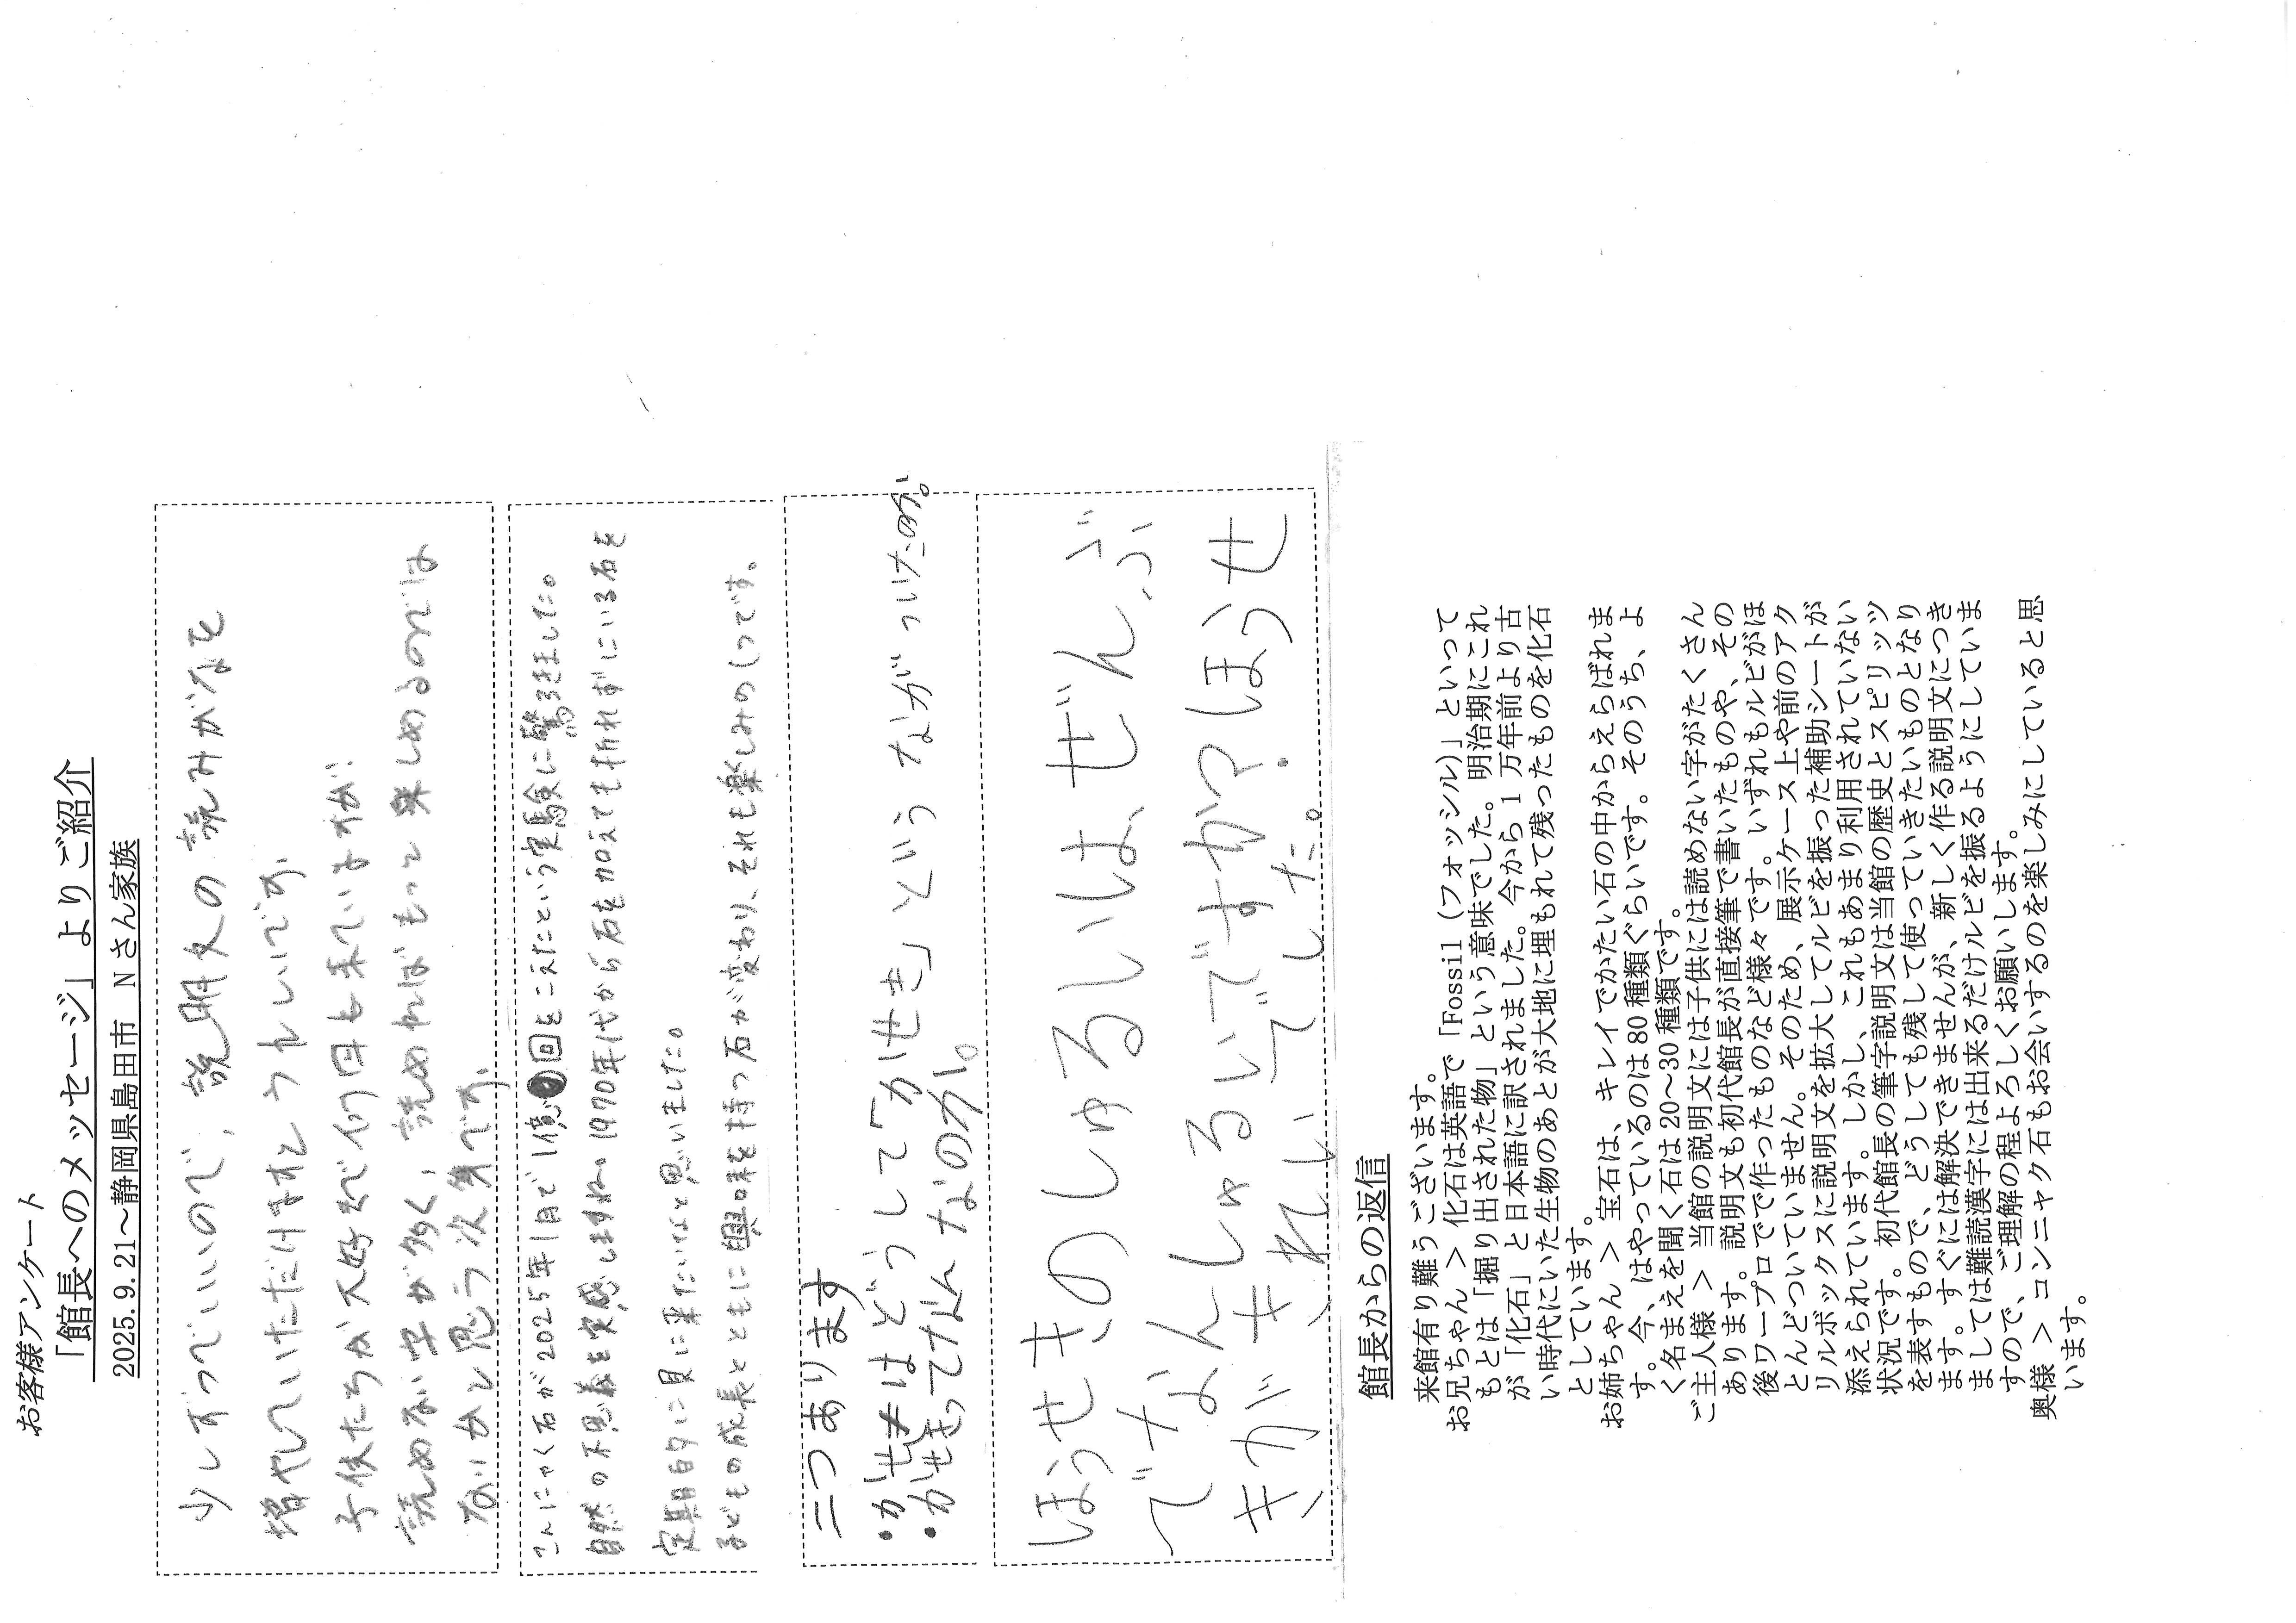 お客様アンケート
「館長へのメッセージ」よりご紹介
2025.9.21～静岡県島田市　Nさん家族
少しずつでいいので、説明文の読みがなを
増やしていただけますと うれしいです。
子供たちが大好きで何回も来ていますが、
読めない字が多く、読めればもっと楽しめるのでは
ないかと思う次第です。
こんにゃく石が2025年1月で1億回をこえたという実験に驚きました。
自然の不思議を実感しますね。1970年代から石を加えても折れずにいる石を
定期的に見に来たいなと思いました。
子どもの成長とともに興味を持つ石が変わり、それも楽しみの1つです。
二つあります
・かせきはどうして「かせき」という なが ついたのか。
・かせきってなんなのか。
ほうせきのしゅるいは、ぜんぶ
でなんしゅるいですか？ほうせ
きが きれいでした。
館長からの返信
来館有り難うございます。
お兄ちゃん ＞ 化石は英語で「Fossil（フォッシル)」といって
もとは「掘り出された物」という意味でした。明治期にこれ
が「化石」と日本語に訳されました。今から1万年前より古
い時代にいた生物のあとが大地に埋もれて残ったものを化石
としています。
お姉ちゃん ＞ 宝石は、キレイでかたい石の中からえらばれま
す。今、はやっているのは80種類ぐらいです。そのうち、よ
く名まえを聞く石は20～30種類です。
ご主人様 ＞ 当館の説明文には子供には読めない字がたくさん
あります。説明文も初代館長が直接筆で書いたものや、その
後ワープロでで作ったものなど様々です。いずれもルビがほ
とんどついていません。そのため、展示ケース上や前のアク
リルボックスに説明文を拡大してルビを振った補助シートが
添えられています。しかし、これもあまり利用されていない
状況です。初代館長の筆字説明文は当館の歴史とスピリッツ
を表すもので、どうしても残して使っていきたいものとなり
ます。すぐには解決できませんが、新しく作る説明文につき
ましては難読漢字には出来るだけルビを振るようにしていま
すので、ご理解の程よろしくお願いします。
奥様 ＞ コンニャク石もお会いするのを楽しみにしていると思
います。